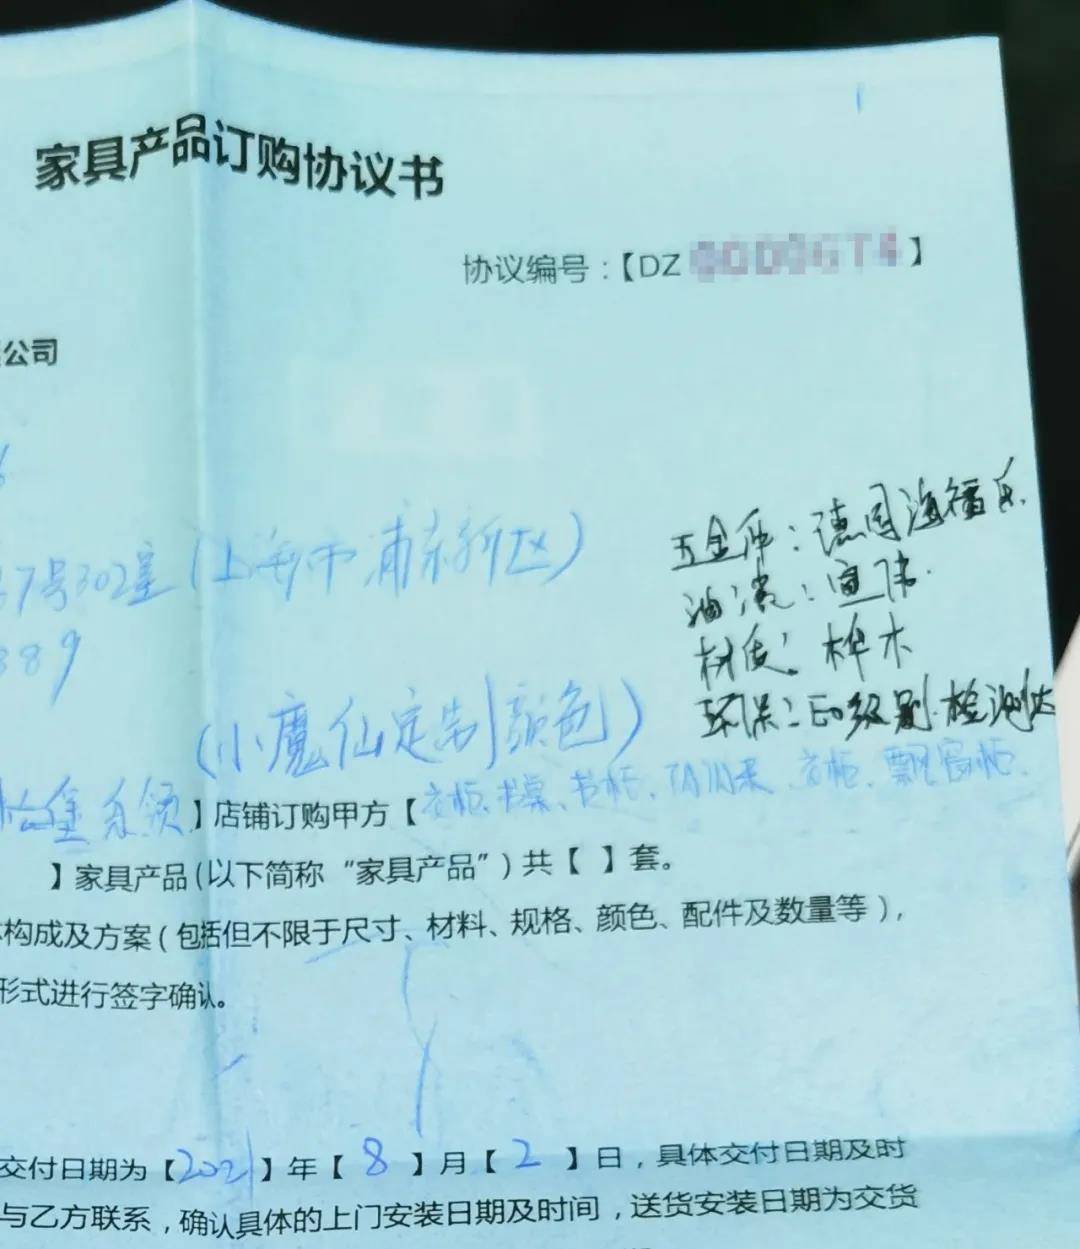 家具产品订购协议书
协议编号：【DZ 】
公司
五金件：德国海福乐.
37号302室（上海市浦东新区）
油漆：宣伟.
889
材质：桦木
环保：E0级别.检测达
（小魔仙定制颜色）
堡系领】店铺订购甲方【衣柜、书桌、书柜、衣柜、飘窗柜.
】家具产品(以下简称“家具产品”）共【 】套。
构成及方案（包括但不限于尺寸、材料、规格、颜色、配件及数量等），
形式进行签字确认。
交付日期为【2021】年【8】月【2】日，具体交付日期及时
与乙方联系，确认具体的上门安装日期及时间，送货安装日期为交货